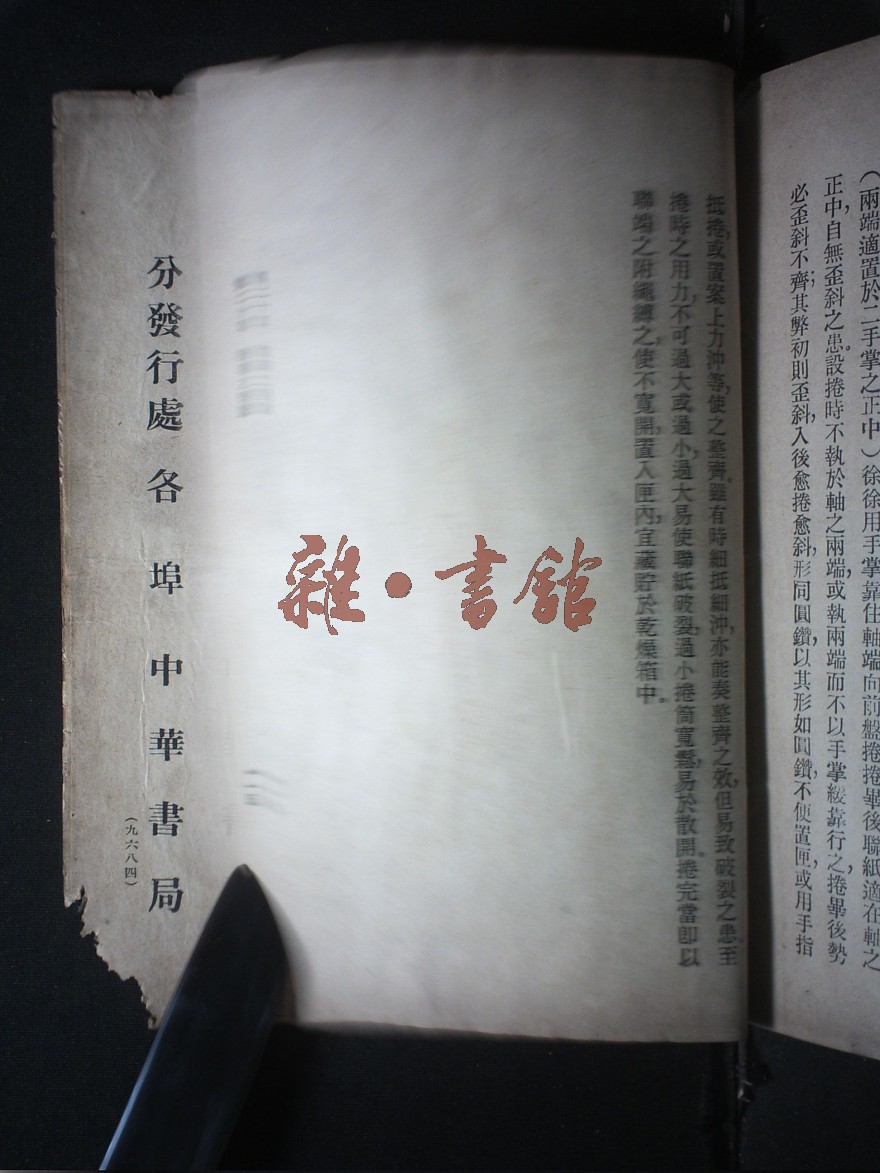 （兩端適置於二手掌之正中）徐徐用手掌靠住軸端向前盤捲捲畢後聯紙適在軸之
正中，自無歪斜之患。設捲時不執於軸之兩端，或執兩端而不以手掌緩靠行之，捲畢後勢
必歪斜不齊；其弊初則歪斜，入後愈捲愈斜，形同圓鑽，以其形如圓鑽，不便置匣，或用手指
抵捲，或置案上力沖等，使之整齊。雖有時細抵細沖，亦能奏整齊之效，但易致破裂之患。至
捲時之用力，不可過大或過小，過大易使聯紙破裂，過小捲筒寬鬆，易於散開。捲完當即以
聯端之附繩縛之，使不寬開，置入匣內，宜藏貯於乾燥箱中。
雜·書館
分發行處 各埠中華書局
（九六八四）